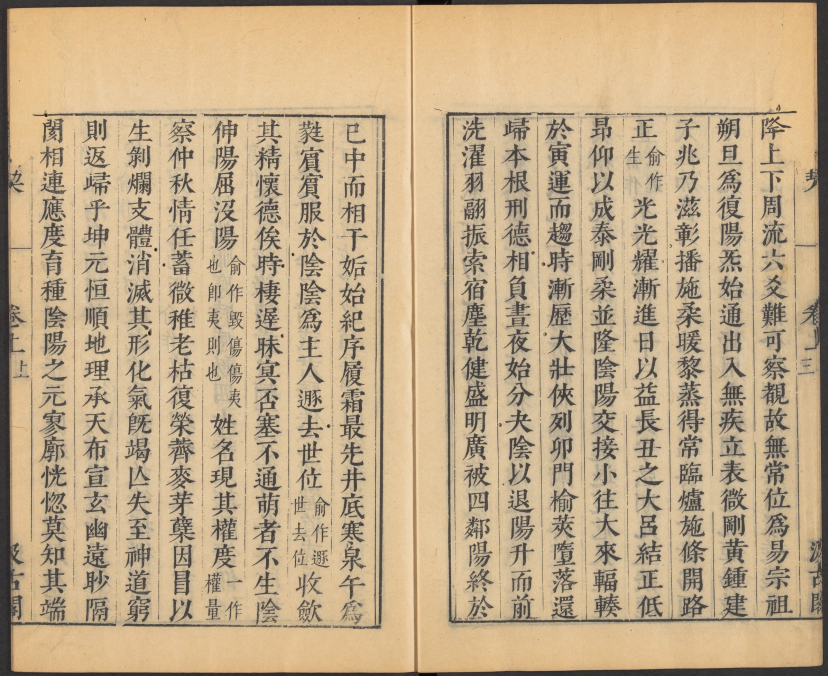 降上下周流六爻難可察覩故無常位為易宗祖
朔旦為復陽炁始通出入無疾立表微剛黃鍾建
子兆乃滋彰播施柔暖黎蒸得常臨爐施條開路
正俞作生光光耀漸進日以益長丑之大呂結正低
昂仰以成泰剛柔並隆陰陽交接小往大來輻輳
於寅運而趨時漸歷大壯俠列卯門榆莢墮落還
歸本根刑德相負晝夜始分夬陰以退陽升而前
洗濯羽翮振索宿塵乾健盛明廣被四鄰陽終於
巳中而相干姤始紀序履霜最先井底寒泉午為
蕤賓賓服於陰陰為主人遯去世位俞作遯世去位收歛
其精懷德俟時棲遲昧冥否塞不通萌者不生陰
伸陽屈沒陽俞作毀傷傷夷也卽夷則也姓名現其權度一作權量
察仲秋情任蓄微稚老枯復榮薺麥芽櫱因冒以
生剝爛支體消滅其形化氣旣竭亾失至神道窮
則返歸乎坤元恒順地理承天布宣玄幽遠眇隔
閡相連應度育種陰陽之元寥廓恍惚莫知其端
契
卷上
三
汲古閣
契
卷上
汲古閣